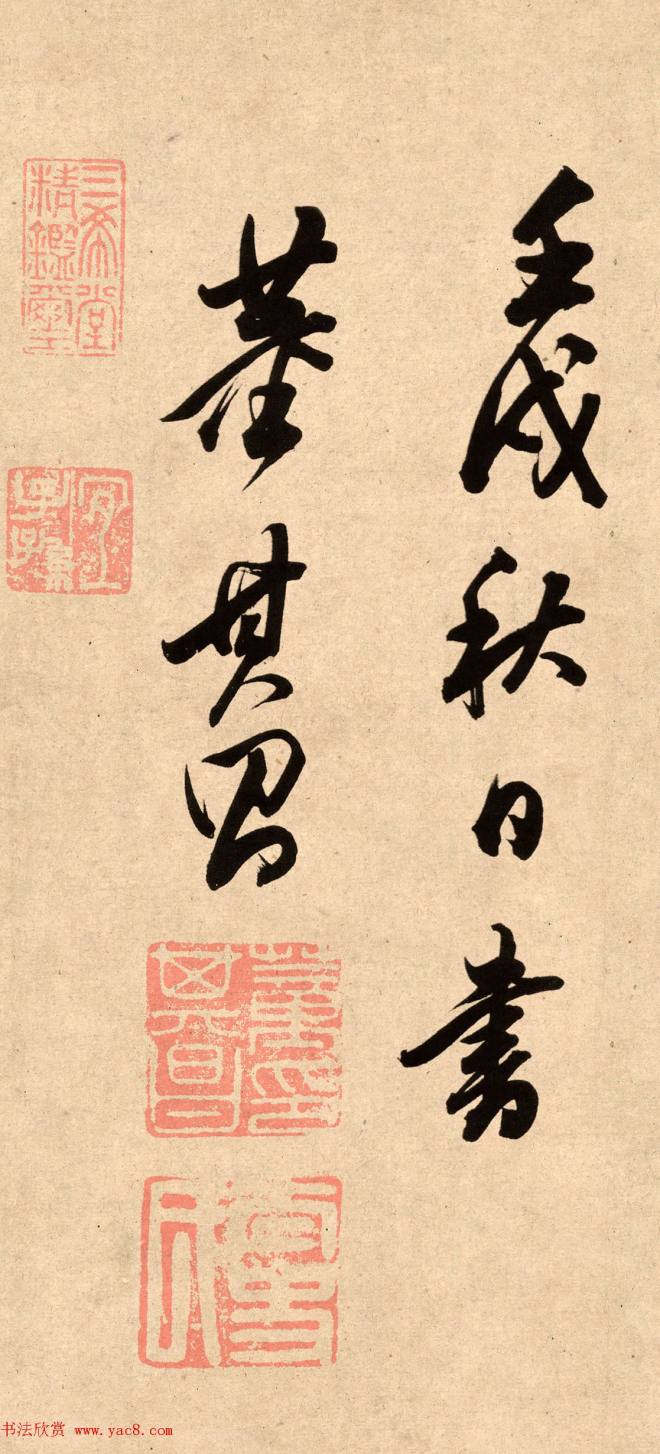 壬戌秋日書
董其昌
三希堂
精鑑璽
宜子孫
董其昌印
书法欣赏 www.yac8.com